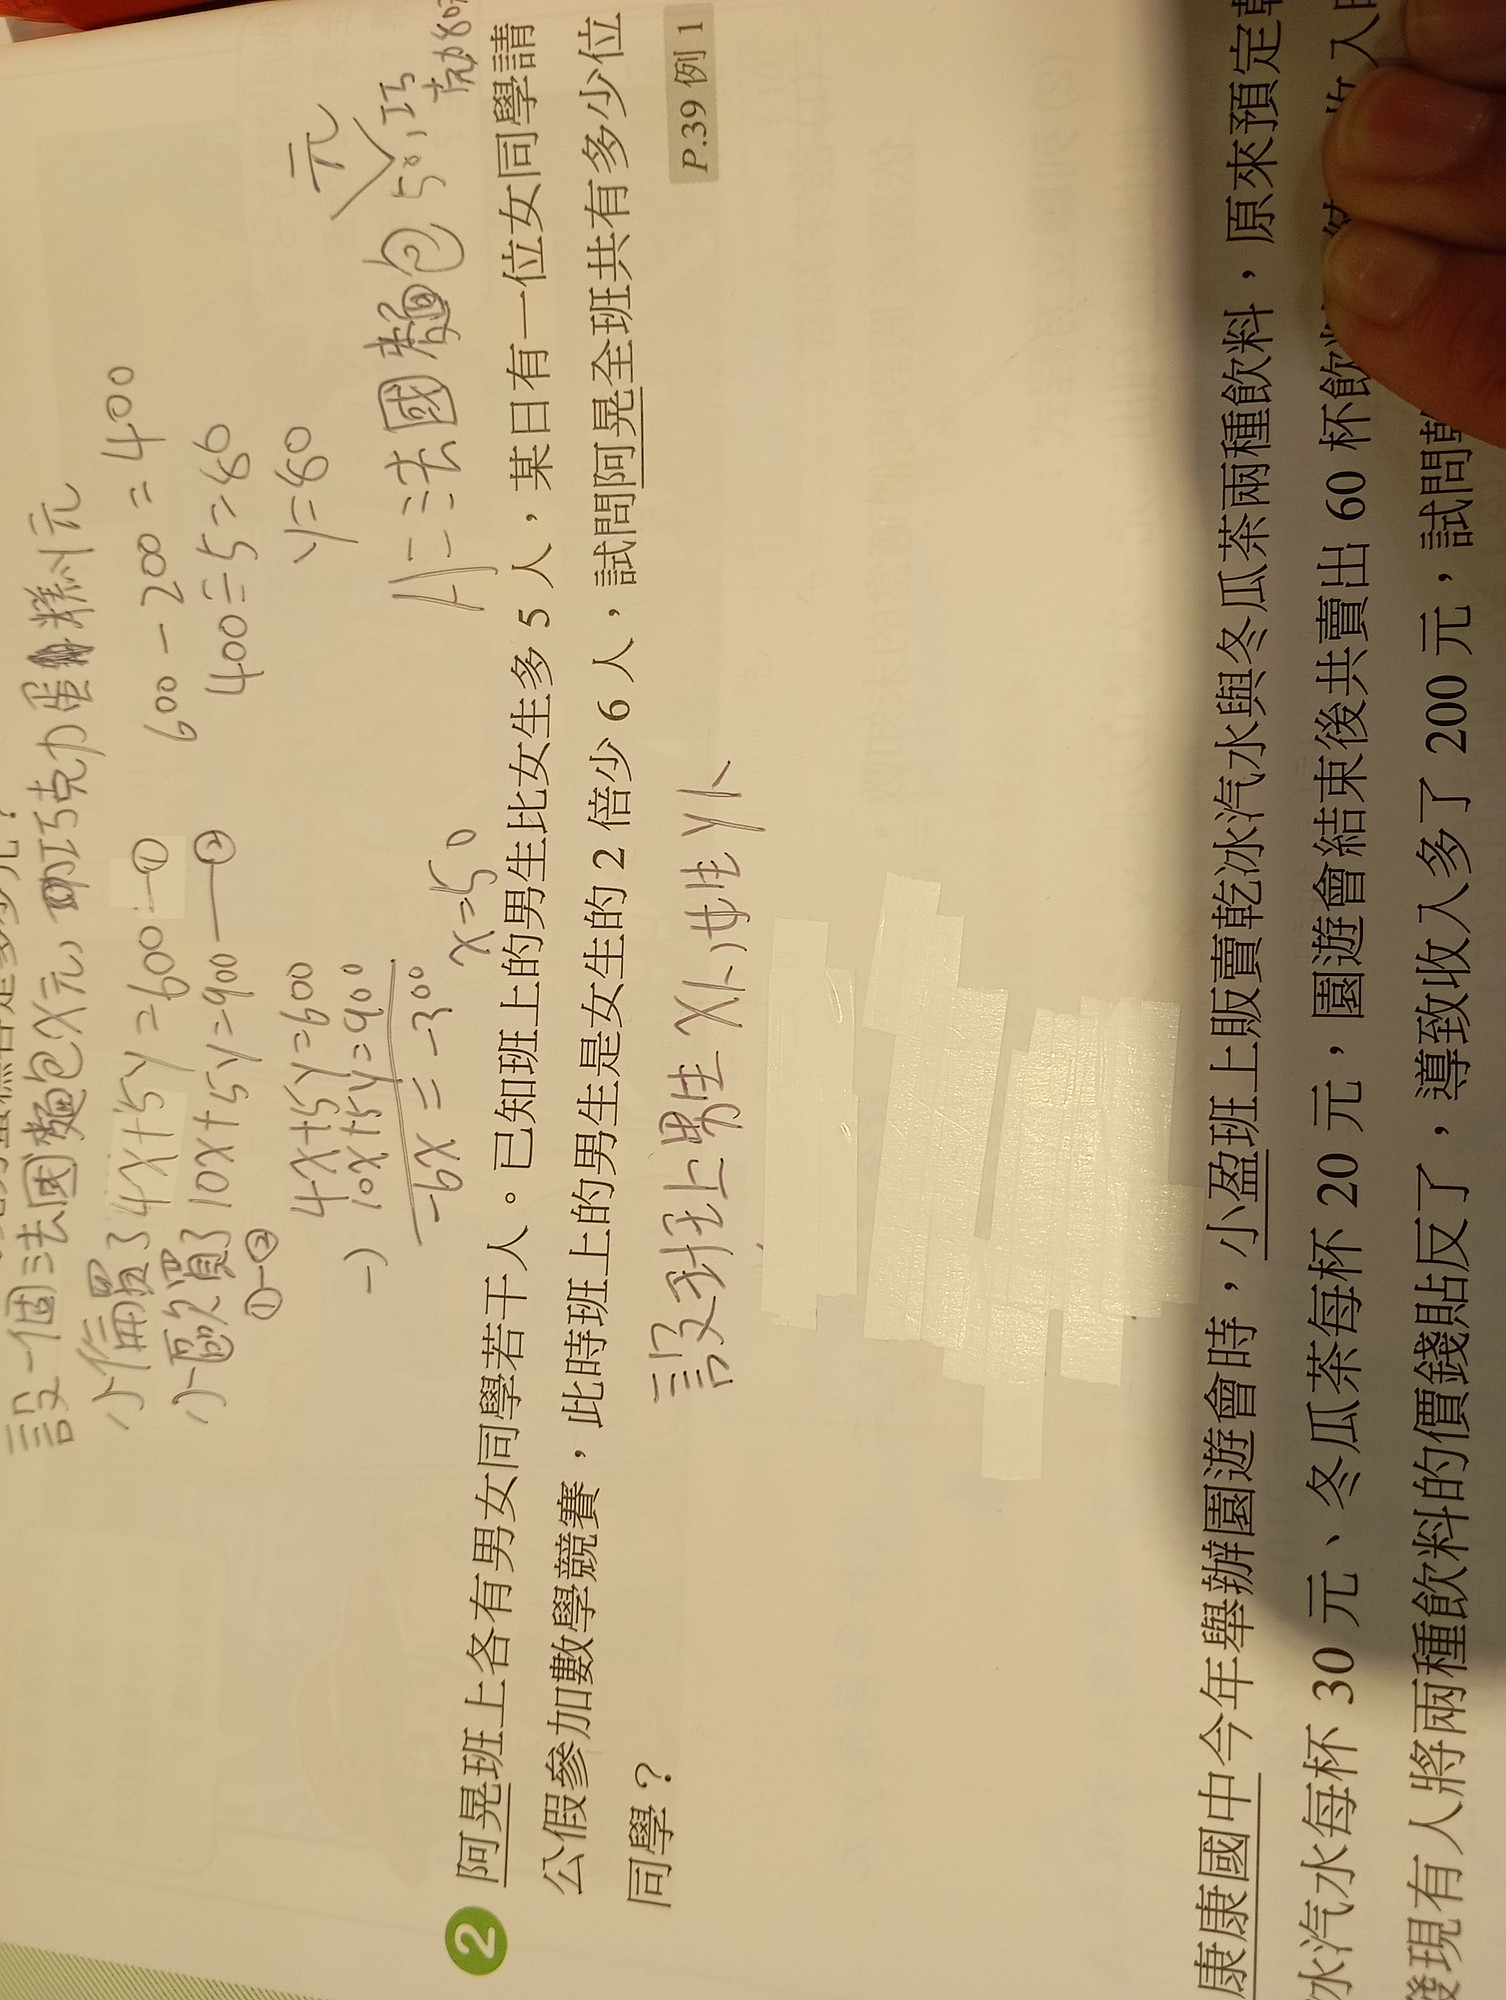 設一個法國麵包X元,巧克力蛋糕y元
小倆買了4X+5y=600—①
600-200=400
小區欠買了10X+5y=900—②
400÷5=80
①-②
4X+5y=600
y=80
-) 10X+5y=900
-6X=-300
X=50
A:法國麵包50,巧克力80
元
2 阿晃班上各有男女同學若干人。已知班上的男生比女生多 5 人,某日有一位女同學請
公假參加數學競賽,此時班上的男生是女生的 2 倍少 6 人,試問阿晃全班共有多少位
同學?
P.39 例 1
設班上男生X人,女生y人
康康國中今年舉辦園遊會時,小盈班上販賣乾冰汽水與冬瓜茶兩種飲料,原來預定
冰汽水每杯 30 元、冬瓜茶每杯 20 元,園遊會結束後共賣出 60 杯飲
發現有人將兩種飲料的價錢貼反了,導致收入多了 200 元,試問